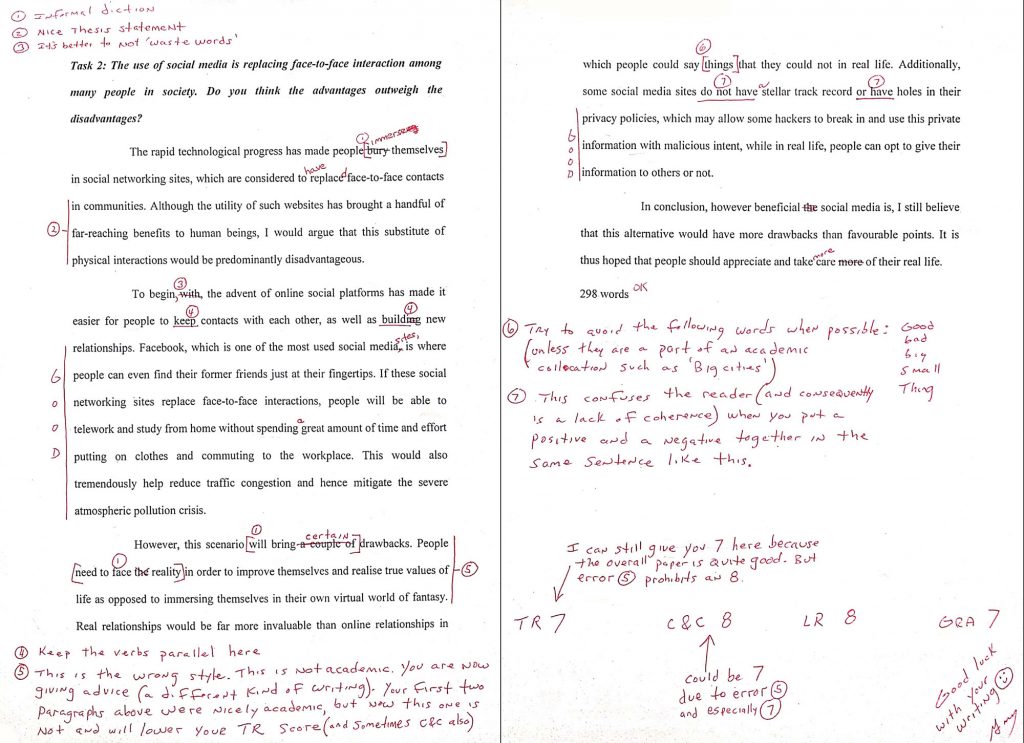 ① Informal diction
② Nice Thesis statement
③ It's better to not 'waste words'
Task 2: The use of social media is replacing face-to-face interaction among
many people in society. Do you think the advantages outweigh the
disadvantages?
① immerse
The rapid technological progress has made people [bury themselves]
have
in social networking sites, which are considered to replaced face-to-face contacts
in communities. Although the utility of such websites has brought a handful of
② far-reaching benefits to human beings, I would argue that this substitute of
physical interactions would be predominantly disadvantageous.
③
To begin, with, the advent of online social platforms has made it
④ ④
easier for people to keep contacts with each other, as well as building new
sites,
relationships. Facebook, which is one of the most used social media, is where
GOOD
people can even find their former friends just at their fingertips. If these social
networking sites replace face-to-face interactions, people will be able to
a
telework and study from home without spending great amount of time and effort
putting on clothes and commuting to the workplace. This would also
tremendously help reduce traffic congestion and hence mitigate the severe
atmospheric pollution crisis.
① certain
However, this scenario [will bring a couple of] drawbacks. People
①
[need to face the reality] in order to improve themselves and realise true values of
⑤
life as opposed to immersing themselves in their own virtual world of fantasy.
Real relationships would be far more invaluable than online relationships in
④ Keep the verbs parallel here
⑤ This is the wrong style. This is not academic. You are now
giving advice (a different kind of writing). Your first two
paragraphs above were nicely academic, but now this one is
not and will lower your TR score (and sometimes C&C also)
⑥
which people could say [things] that they could not in real life. Additionally,
⑦ a ⑦
some social media sites do not have stellar track record or have holes in their
privacy policies, which may allow some hackers to break in and use this private
GOOD
information with malicious intent, while in real life, people can opt to give their
information to others or not.
In conclusion, however beneficial the social media is, I still believe
that this alternative would have more drawbacks than favourable points. It is
more
thus hoped that people should appreciate and take care more of their real life.
298 words OK
⑥ Try to avoid the following words when possible: Good
(unless they are a part of an academic bad
collocation such as 'Big cities') big
small
Thing
⑦ This confuses the reader (and consequently
is a lack of coherence) when you put a
positive and a negative together in the
same sentence like this.
I can still give you 7 here because
the overall paper is quite good. But
error ⑤ prohibits an 8.
TR 7 C&C 8 LR 8 GRA 7
could be 7
due to error ⑤
and especially ⑦
Good luck
with your
writing